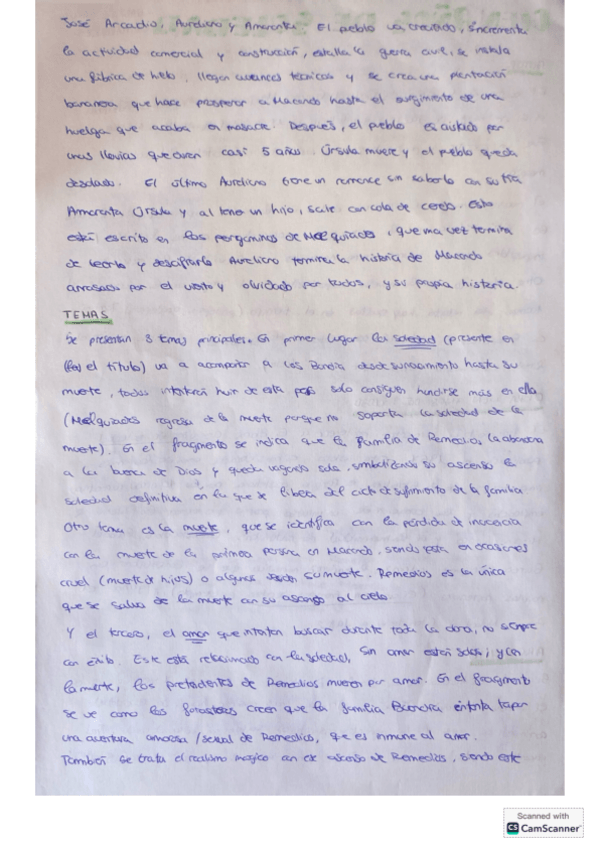 José Arcadio, Aureliano y Amaranta. El pueblo va creciendo, incrementa
la actividad comercial y construcción, estalla la guerra civil, se instala
una fábrica de hielo, llegan avances técnicos y se crea una plantación
bananera que hace prosperar a Macondo hasta el surgimiento de una
huelga que acaba en masacre. Después, el pueblo es aislado por
unas lluvias que duran casi 5 años. Úrsula muere y el pueblo queda
desolado. El último Aureliano tiene un romance sin saberlo con su tía
Amaranta Úrsula y al tener un hijo, sale con cola de cerdo. Esto
está escrito en los pergaminos de Melquiades, que una vez termina
de leerlo y descifrarlo Aureliano termina la historia de Macondo
arrasados por el viento y olvidado por todos, y su propia historia.
TEMAS
Se presentan 3 temas principales. En primer lugar la soledad (presente en
el título) va a acompañar a los Buendía desde su nacimiento hasta su
muerte, todos intentarán huir de esta pero solo consiguen hundirse más en ella
(Melquiades regresa de la muerte porque no soporta la soledad de la
muerte). En el fragmento se indica que la familia de Remedios la abandona
a la buena de Dios y queda vagando sola, simbolizando su ascenso la
soledad definitiva en la que se libera del ciclo de sufrimiento de la familia
Otro tema es la muerte, que se identifica con la pérdida de inocencia
con la muerte de la primera persona en Macondo, siendo esta en ocasiones
cruel (muerte de hijos) o algunos su muerte. Remedios es la única
que se salva de la muerte con su ascenso al cielo
Y el tercero, el amor que intentan buscar durante toda la obra, no siempre
con éxito. Este está relacionado con la soledad, sin amor están solos, y con
la muerte, los pretendientes de Remedios mueren por amor. En el fragmento
se ve como los forasteros creen que la familia Buendía intenta tapar
una aventura amorosa/sexual de Remedios, que es inmune al amor.
También se trata el realismo mágico con el ascenso de Remedios, siendo este
Scanned with
CS CamScanner